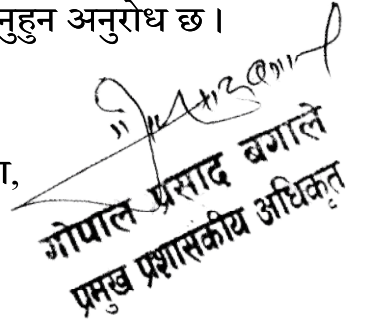 नुहुन अनुरोध छ ।
ा,
गोपाल प्रसाद बगाले
प्रमुख प्रशासकीय अधिकृत